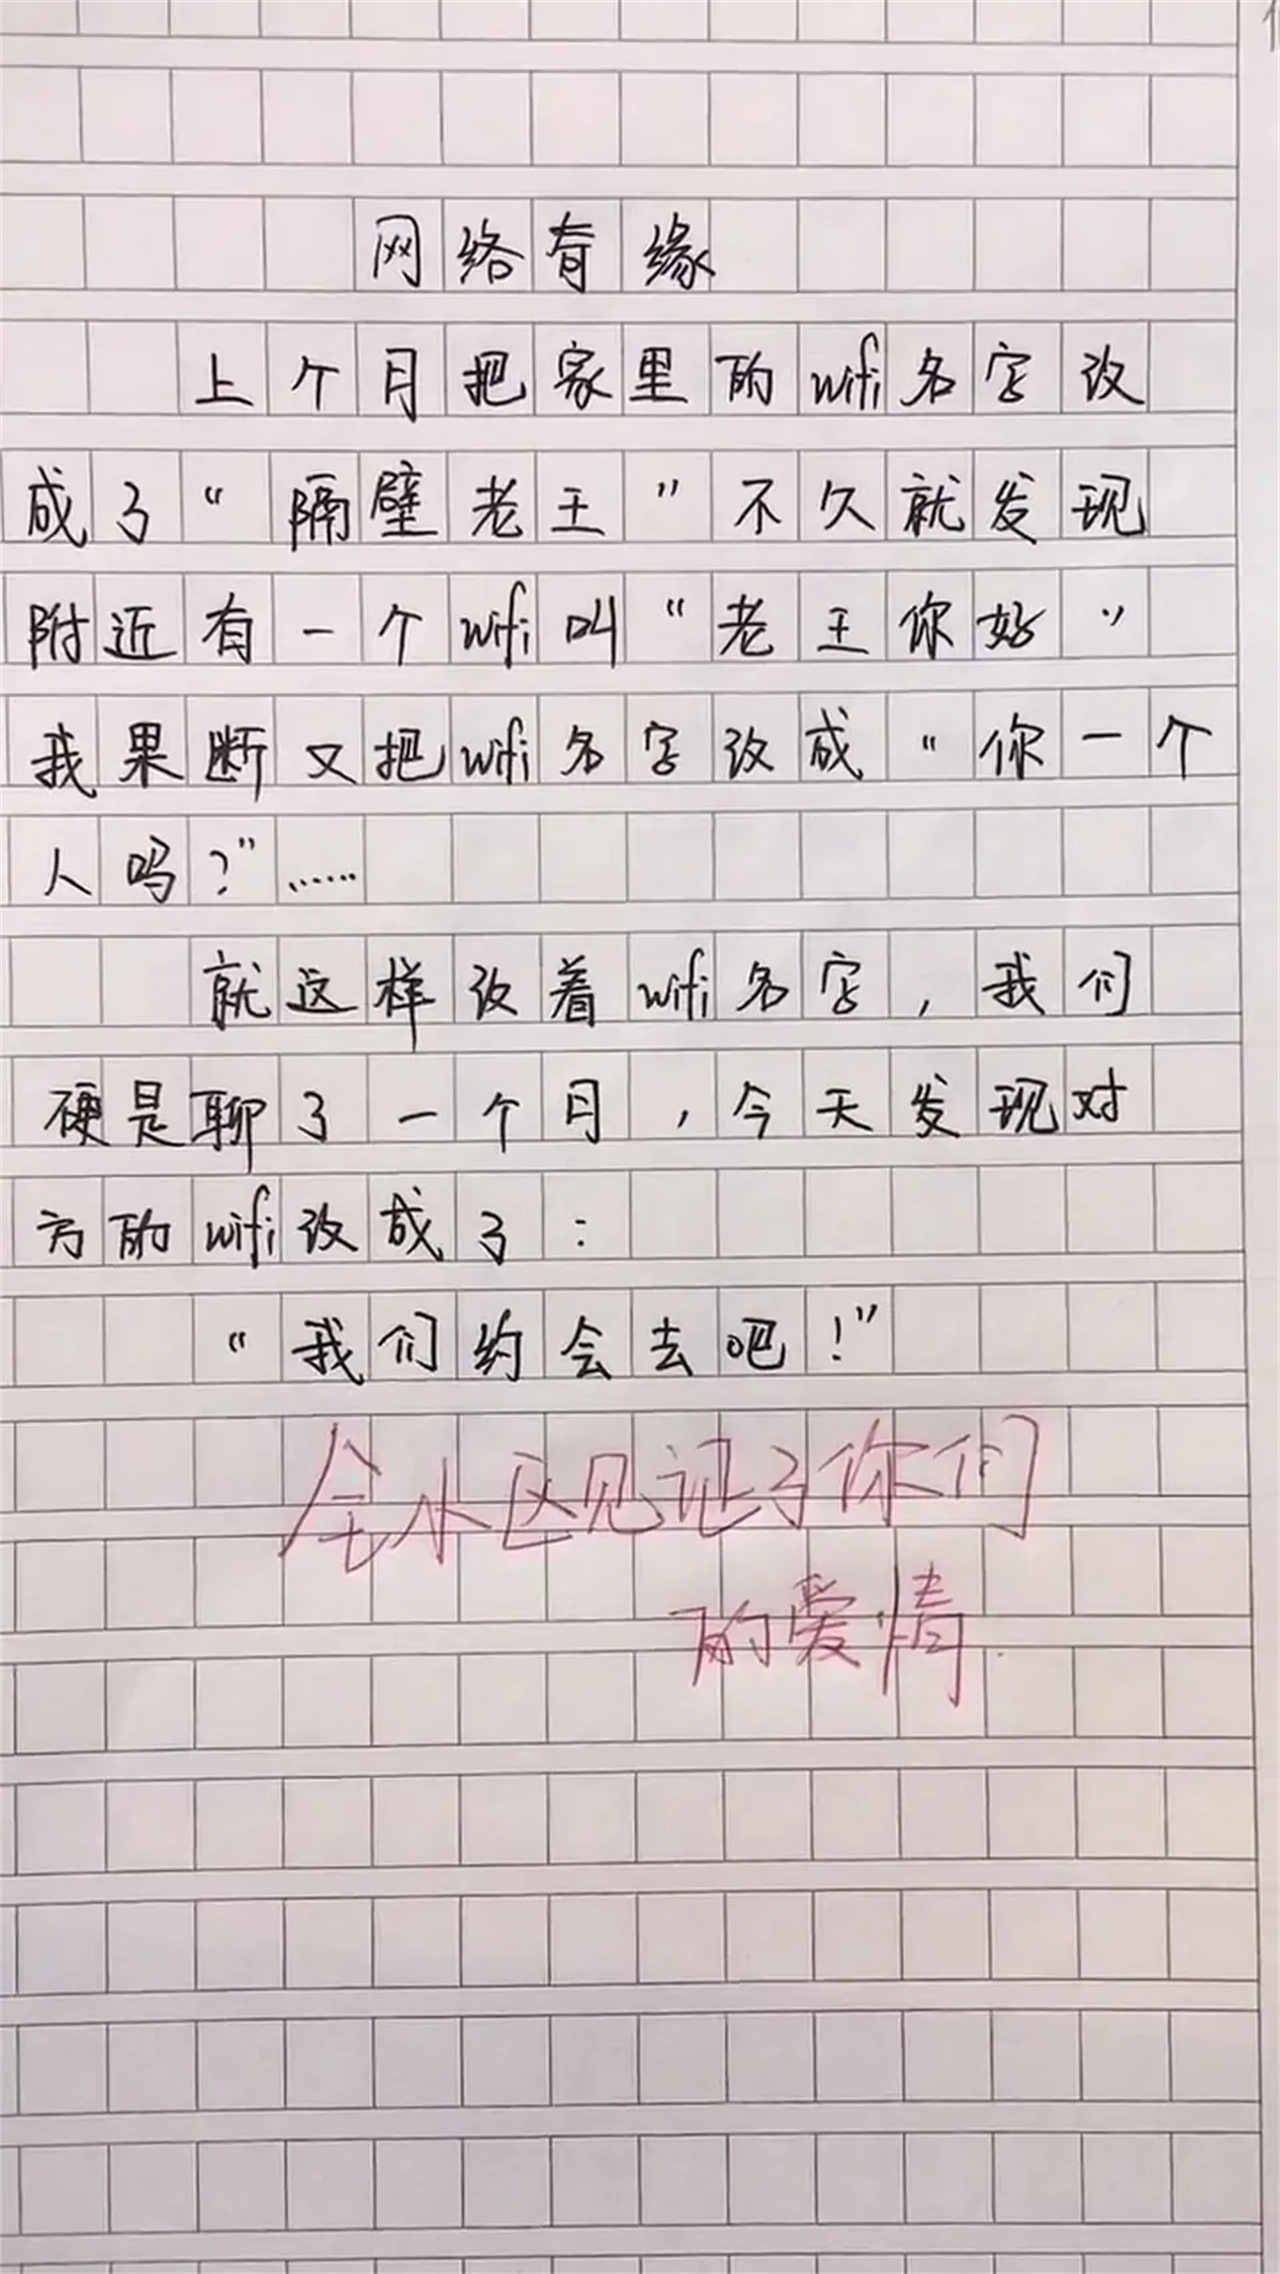 网络奇缘
上个月把家里的wifi名字改
成了“隔壁老王”不久就发现
附近有一个wifi叫“老王你好”
我果断又把wifi名字改成“你一个
人吗?”……
就这样改着wifi名字,我们
硬是聊了一个月,今天发现对
方的wifi改成了:
“我们约会去吧!”
全小区见证了你们
的爱情.